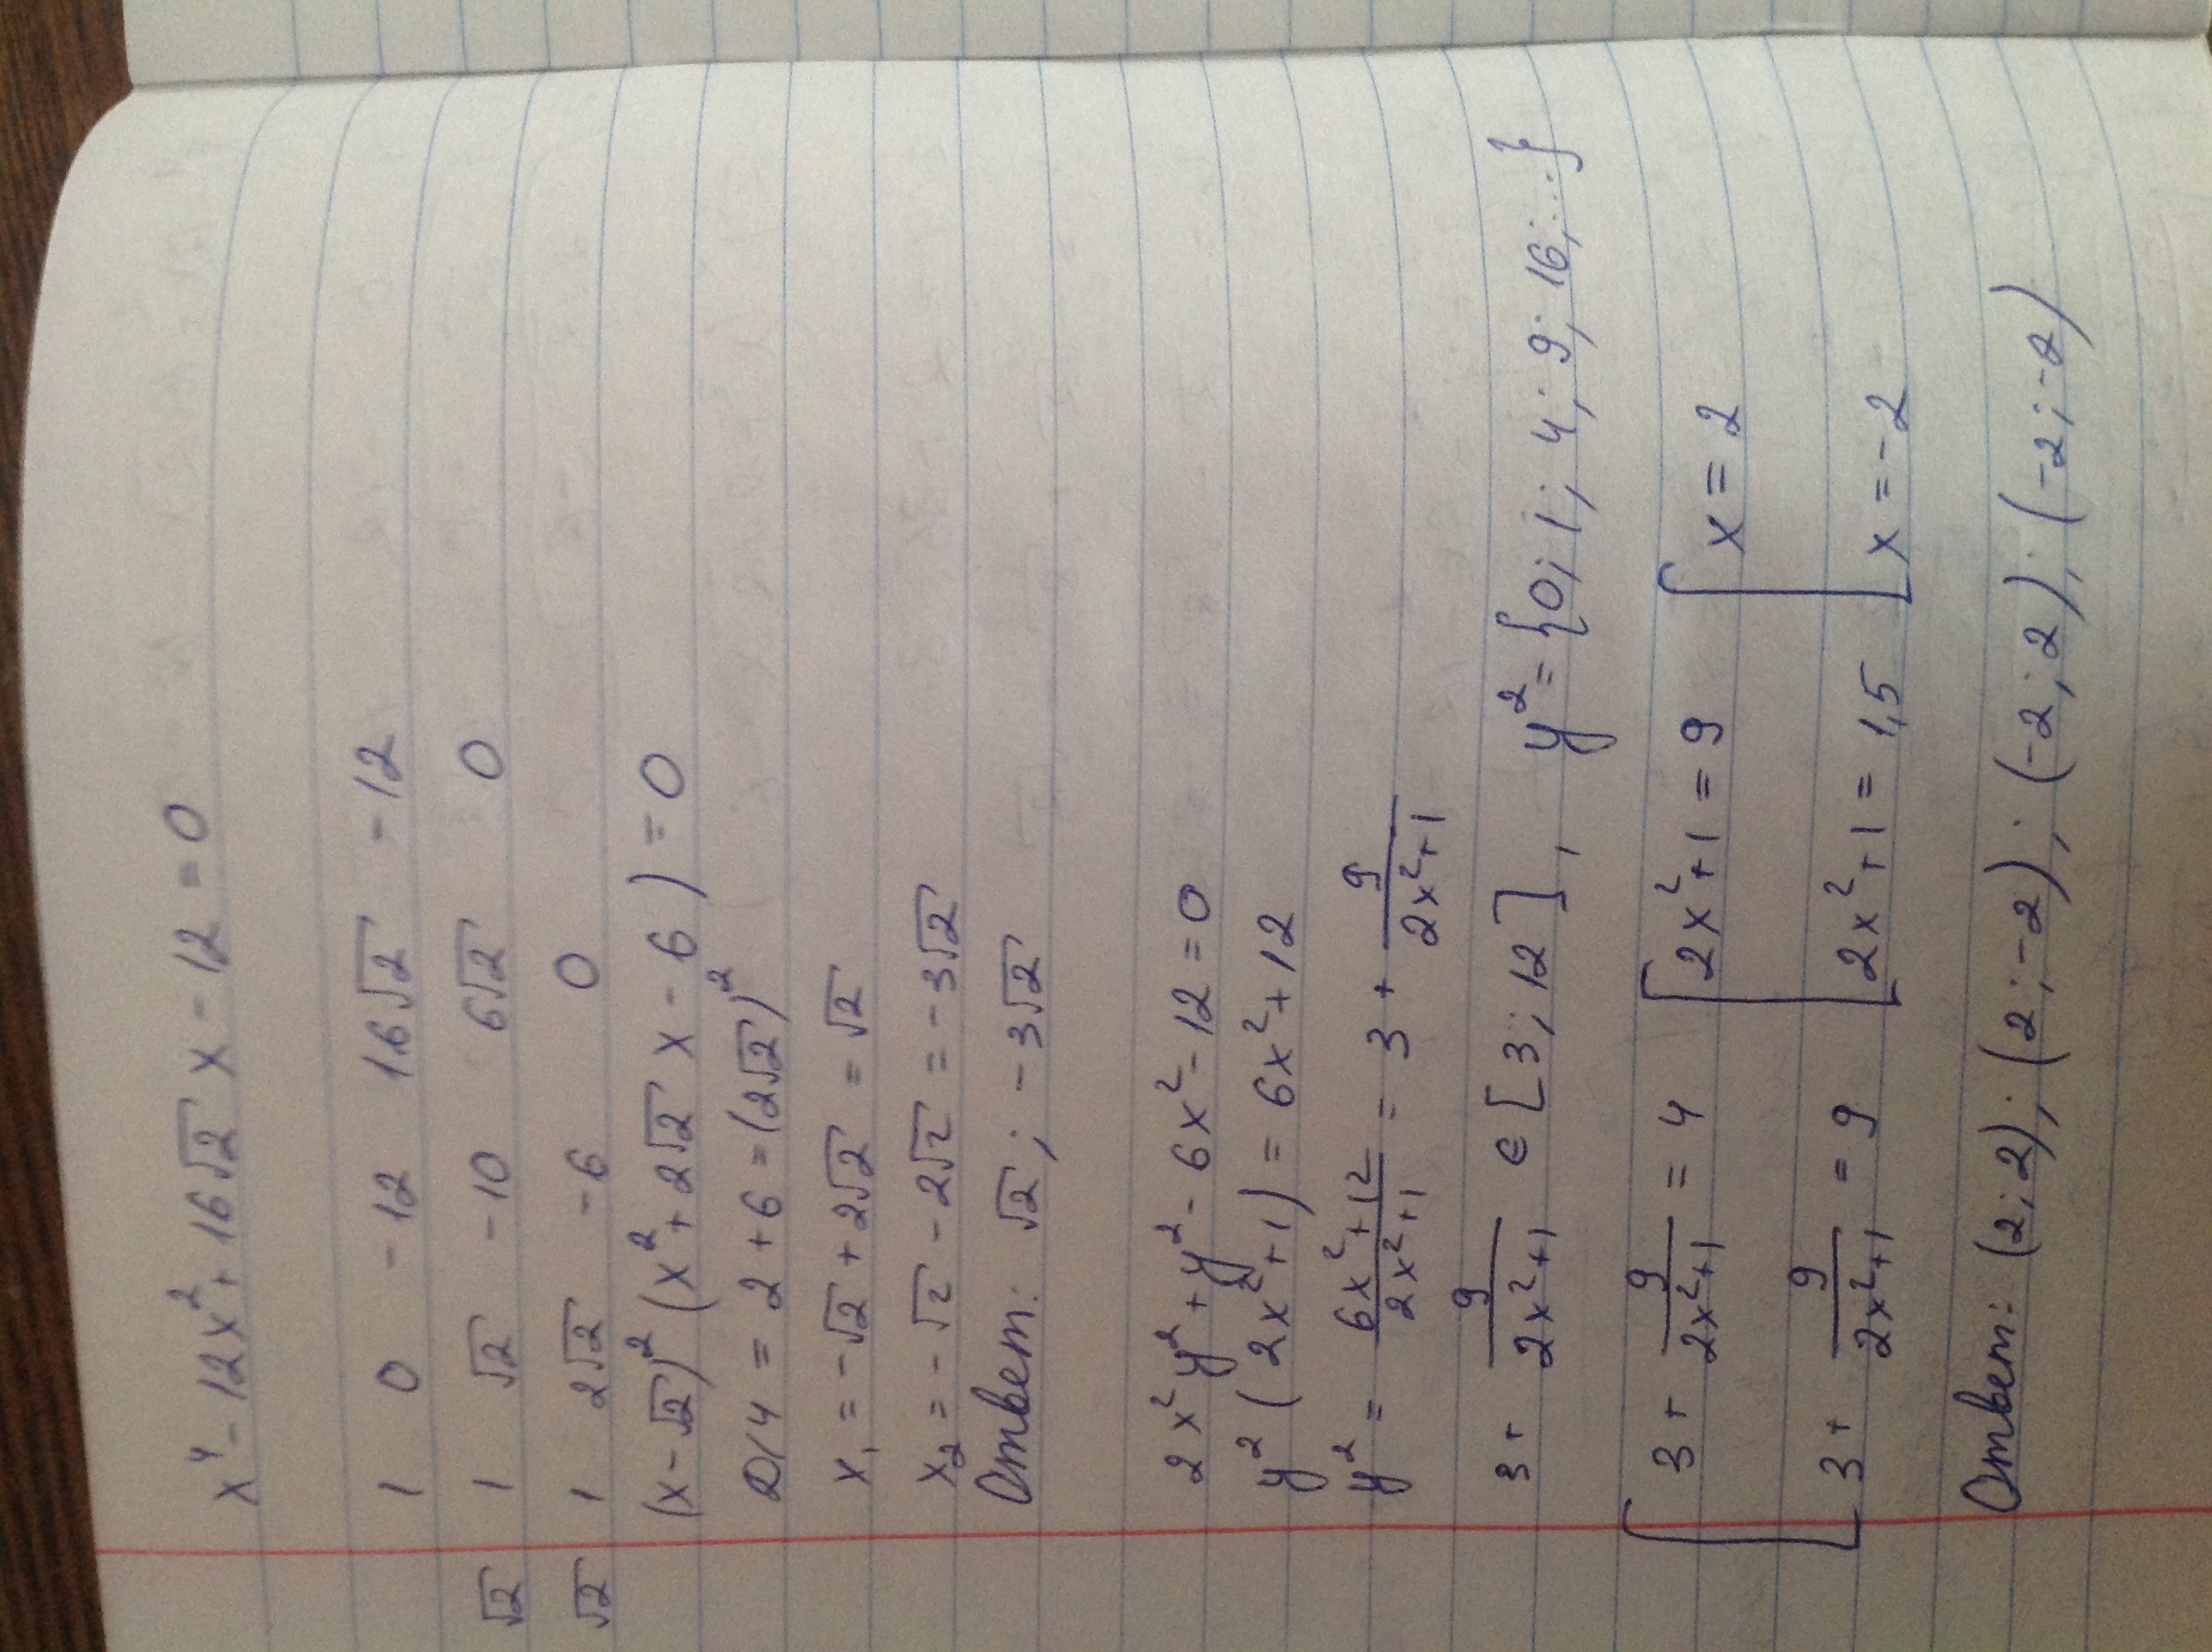 x⁴ - 12x² + 16√2 x - 12 = 0
1 0 -12 16√2 -12
√2 1 √2 -10 6√2 0
√2 1 2√2 -6 0
(x-√2)² (x² + 2√2 x - 6) = 0
D/4 = 2 + 6 = (2√2)²
x₁ = -√2 + 2√2 = √2
x₂ = -√2 - 2√2 = -3√2
Ответ: √2; -3√2
2x²y² + y² - 6x² - 12 = 0
y² (2x² + 1) = 6x² + 12
y² = (6x² + 12)/(2x² + 1) = 3 + 9/(2x² + 1)
3 + 9/(2x² + 1) ∈ [3; 12], y² = {0; 1; 4; 9; 16; ...}
[ 3 + 9/(2x² + 1) = 4 [ 2x² + 1 = 9 [ x = 2
[ 3 + 9/(2x² + 1) = 9 [ 2x² + 1 = 1,5 [ x = -2
Ответ: (2; 2); (2; -2); (-2; 2); (-2; -2)